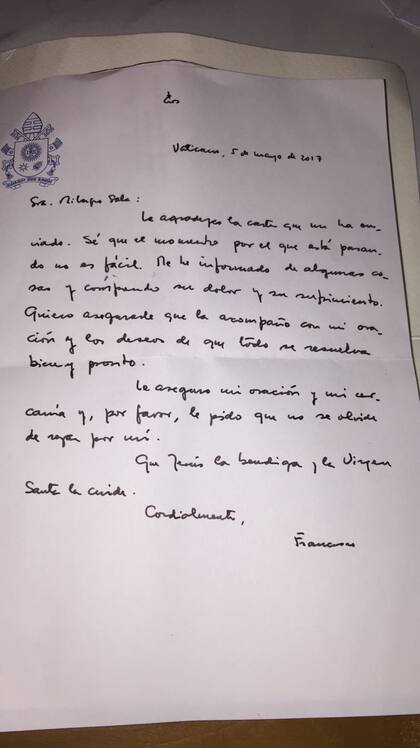 Vaticano, 5 de mayo de 2017
Sra. Milagro Sala:
Le agradezco la carta que me ha en-
viado. Sé que el momento por el que está pasan-
do no es fácil. Me he informado de algunas co-
sas y comprendo su dolor y su sufrimiento.
Quiero asegurarle que la acompaño con mi ora-
ción y los deseos de que todo se resuelva
bien y pronto.
Le aseguro mi oración y mi cer-
canía y, por favor, le pido que no se olvide
de rezar por mí.
Que Jesús la bendiga y la Virgen
Santa la cuide.
Cordialmente,
Francisco